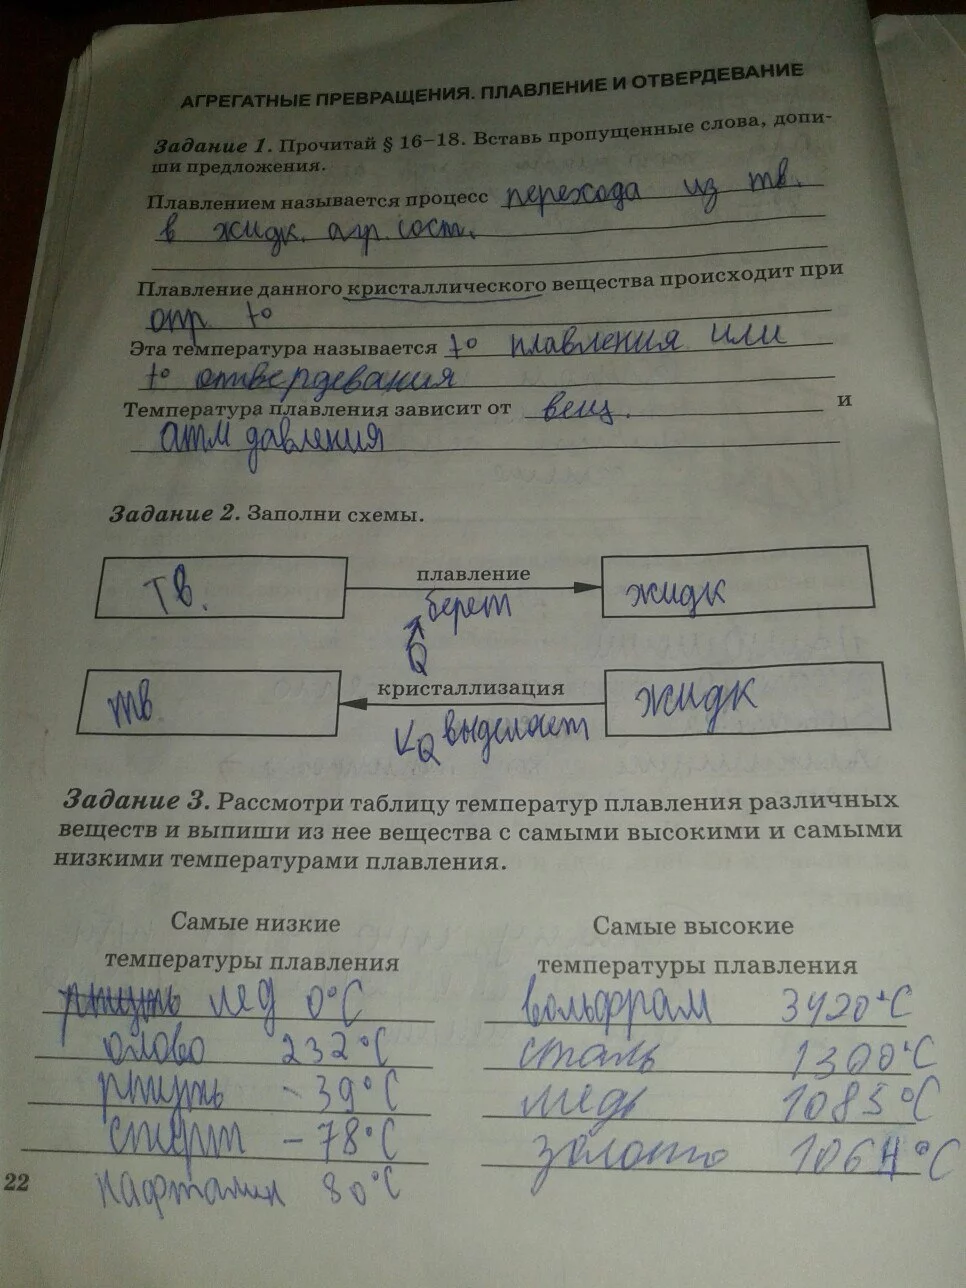 АГРЕГАТНЫЕ ПРЕВРАЩЕНИЯ. ПЛАВЛЕНИЕ И ОТВЕРДЕВАНИЕ
Задание 1. Прочитай § 16–18. Вставь пропущенные слова, допи-
ши предложения.
Плавлением называется процесс перехода из тв.
в жидк. агр. сост.
Плавление данного кристаллического вещества происходит при
опр t°
Эта температура называется t° плавления или
t° отвердевания
Температура плавления зависит от вещ. и
атм давления
Задание 2. Заполни схемы.
Тв. плавление жидк
берет
Q
тв кристаллизация жидк
Q выделает
Задание 3. Рассмотри таблицу температур плавления различных
веществ и выпиши из нее вещества с самыми высокими и самыми
низкими температурами плавления.
Самые низкие
температуры плавления
ртуть лед 0°C
олово 232°C
ртуть - 39°C
спирт - 78°C
нафталин 80°C
Самые высокие
температуры плавления
вольфрам 3420°C
сталь 1300°C
медь 1085°C
золото 1064°C
22